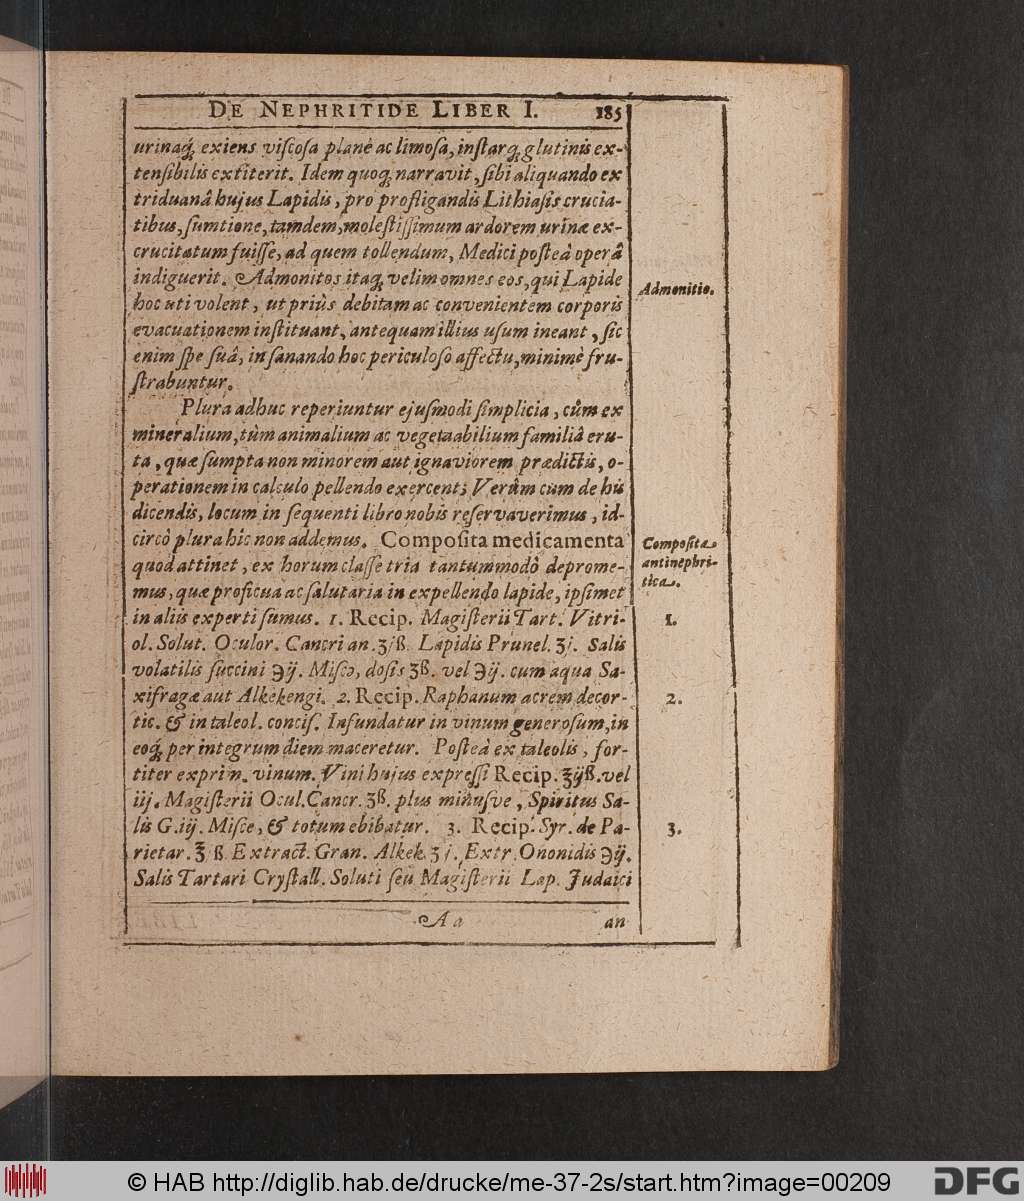 DE NEPHRITIDE LIBER I. 185
urinaq́; exiens viſcoſa planè ac limoſa, inſtarq́; glutinis ex-
tenſibilis extiterit. Idem quoq; narravit, ſibi aliquando ex
triduanâ hujus Lapidis, pro profligandis Lithiaſis crucia-
tibus, ſumtione, tamdem, moleſtiſſimum ardorem urinæ ex-
crucitatum fuiſſe, ad quem tollendum, Medici poſteà operâ
indiguerit. Admonitos itaq; velim omnes eos, qui Lapide
hoc uti volent, ut priùs debitam ac convenientem corporis
evacuationem inſtituant, antequam illius uſum ineant, ſic
enim ſpe ſuâ, in ſanando hoc periculoſo affectu, minimè fru-
ſtrabuntur.
Admonitio.
Plura adhuc reperiuntur ejuſmodi ſimplicia, cùm ex
mineralium, tùm animalium ac vegetaabilium familiâ eru-
ta, quæ ſumpta non minorem aut ignaviorem prædictis, o-
perationem in calculo pellendo exercent; Verùm cum de his
dicendis, locum in ſequenti libro nobis reſervaverimus, id-
circò plura hîc non addemus. Compoſita medicamenta
quod attinet, ex horum claſſe tria tantummodò deprome-
mus, quæ proficua ac ſalutaria in expellendo lapide, ipſimet
in aliis experti ſumus. 1. Recip. Magiſterii Tart. Vitri-
ol. Solut. Oculor. Cancri an. ʒjß. Lapidis Prunel. ʒj. Salis
volatilis ſuccini ℈ij. Miſce, doſis ʒß. vel ℈ij. cum aqua Sa-
xifragæ aut Alkekengi. 2. Recip. Raphanum acrem decor-
tic. & in taleol. conciſ. Infundatur in vinum generoſum, in
eoq́; per integrum diem maceretur. Poſteà ex taleolis, for-
titer exprim. vinum. Vini hujus expreſſi Recip. ℥ijß. vel
iij. Magiſterii Ocul. Cancr. ʒß. plus minuſve, Spiritus Sa-
lis G. iij. Miſce, & totum ebibatur. 3. Recip. Syr. de Pa-
rietar. ℥ ß. Extract. Gran. Alkek. ʒ j. Extr. Ononidis ℈ij.
Salis Tartari Cryſtall. Soluti ſeu Magiſterii Lap. Judaici
Compoſita
antinephri-
tica.
1.
2.
3.
Aa an
© HAB http://diglib.hab.de/drucke/me-37-2s/start.htm?image=00209
DFG